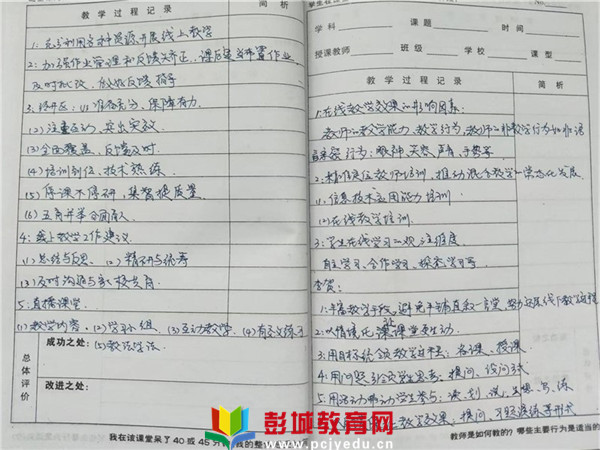 教学过程记录
简析
1. 充分利用各种资源开展线上教学
2: 加强作业管理和反馈矫正, 课后要布置作业,
及时批改, 做好反馈指导
3. 经开区: (1) 准备充分, 保障有力
(2) 注重互动, 突出实效
(3) 全面覆盖, 反馈及时.
(4) 培训到位, 技术熟练
(5) 停课不停研, 集智提质量
(6) 五育并举全面育人
4: 线上教学工作建议
(1) 总结与反思 (2) 精研与统筹
(3) 及时沟通与家校共育
5: 直播课堂
(1) 教学内容. (2) 学习小组. (3) 互动教学. (4) 有效练习
(5) 教法学法
总体评价
成功之处:
改进之处:
我在该课堂呆了40或45分
我的整
学科
课题
时间
授课教师
班级
学校
课型
教学过程记录
简析
1. 在线教学效果的影响因素:
教师的教学能力, 教学行为, 教师的非教学行为的非语
言行为: 眼神、关怀、声音、手势等
2. 精准定位教师培训, 推动混合教学常态化发展.
(1) 信息技术应用能力培训
(2) 在线教学培训.
3: 学生在线学习的关注维度
自主学习、合作学习、探究学习等
2. 以情境化 课堂 生动.
3. 用目标统领教学过程: 备课、授课
4. 用问题引领学生思考: 提问、设问式
5. 用活动带动学生参与: 读、划、说、写、练
教学效果: 提问、习题演练等形式
教师是如何教的? 哪些主要行为是适当的
彭城教育网
www.pcjyedu.cn